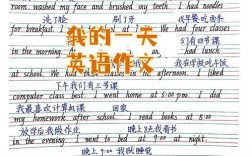 room. washed my face and brushed my teeth. I had noodles
洗了脸 刷了牙
for breakfast. I
We had four classes
in the morning. A
had lunch
at school. We had
classes in the
afternoon. I liked
下午我们有三节课
computer class best. I went home at 5:00 p.m. I did
我最喜欢计算机课 回家
my homework after school. I read books at 8:00 p.m.
放学后我做作业 晚上8点我看书
in the evening. I went to bed at 9:00 at night.
晚上9:00 我就睡觉
我的一天
英语作文